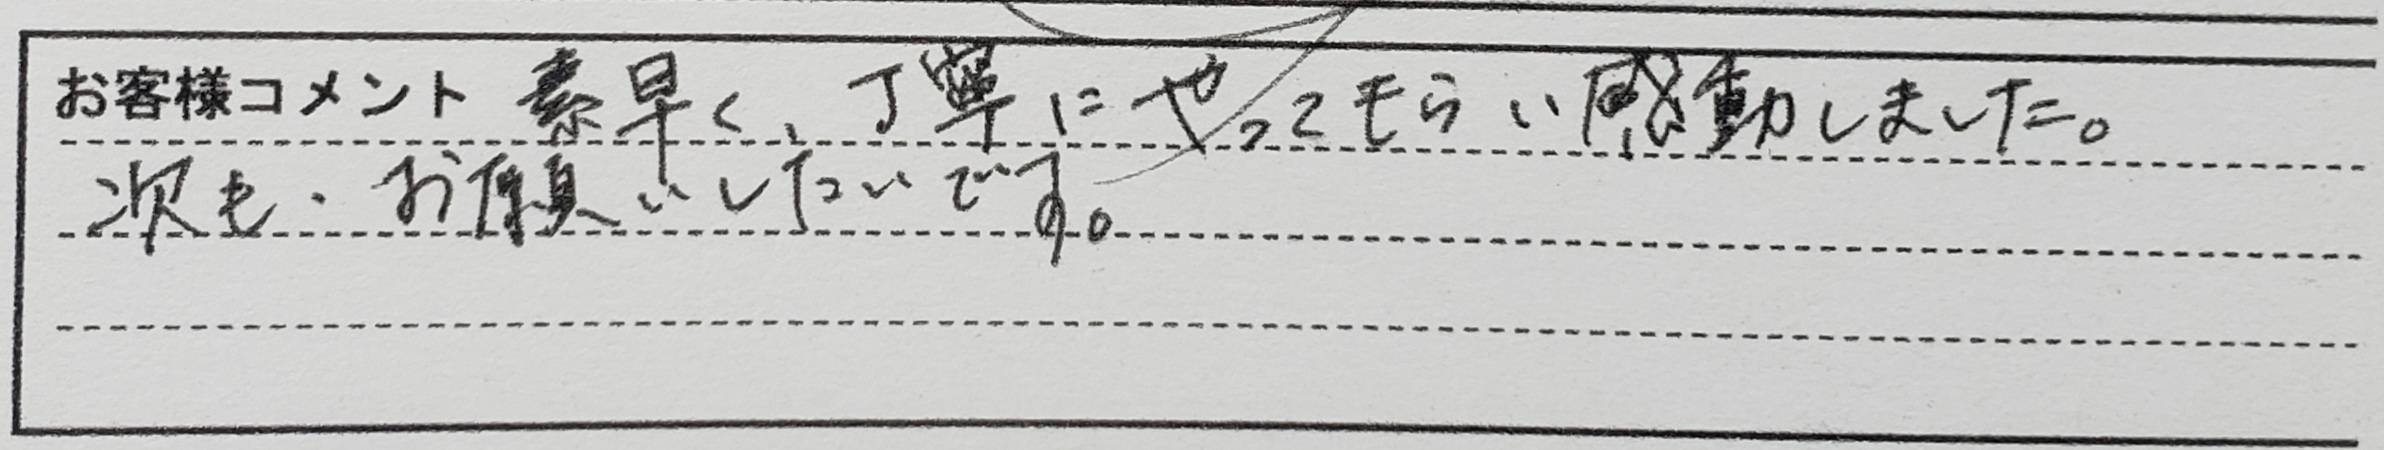 お客様コメント 素早く、丁寧にやってもらい感動しました。
次も、お願いしたいです。